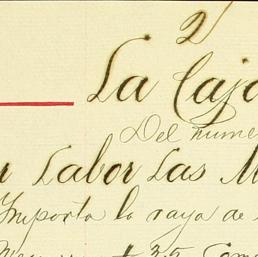 2
La Caja
Del nume
r Labor Las M
Importa la raya de
35